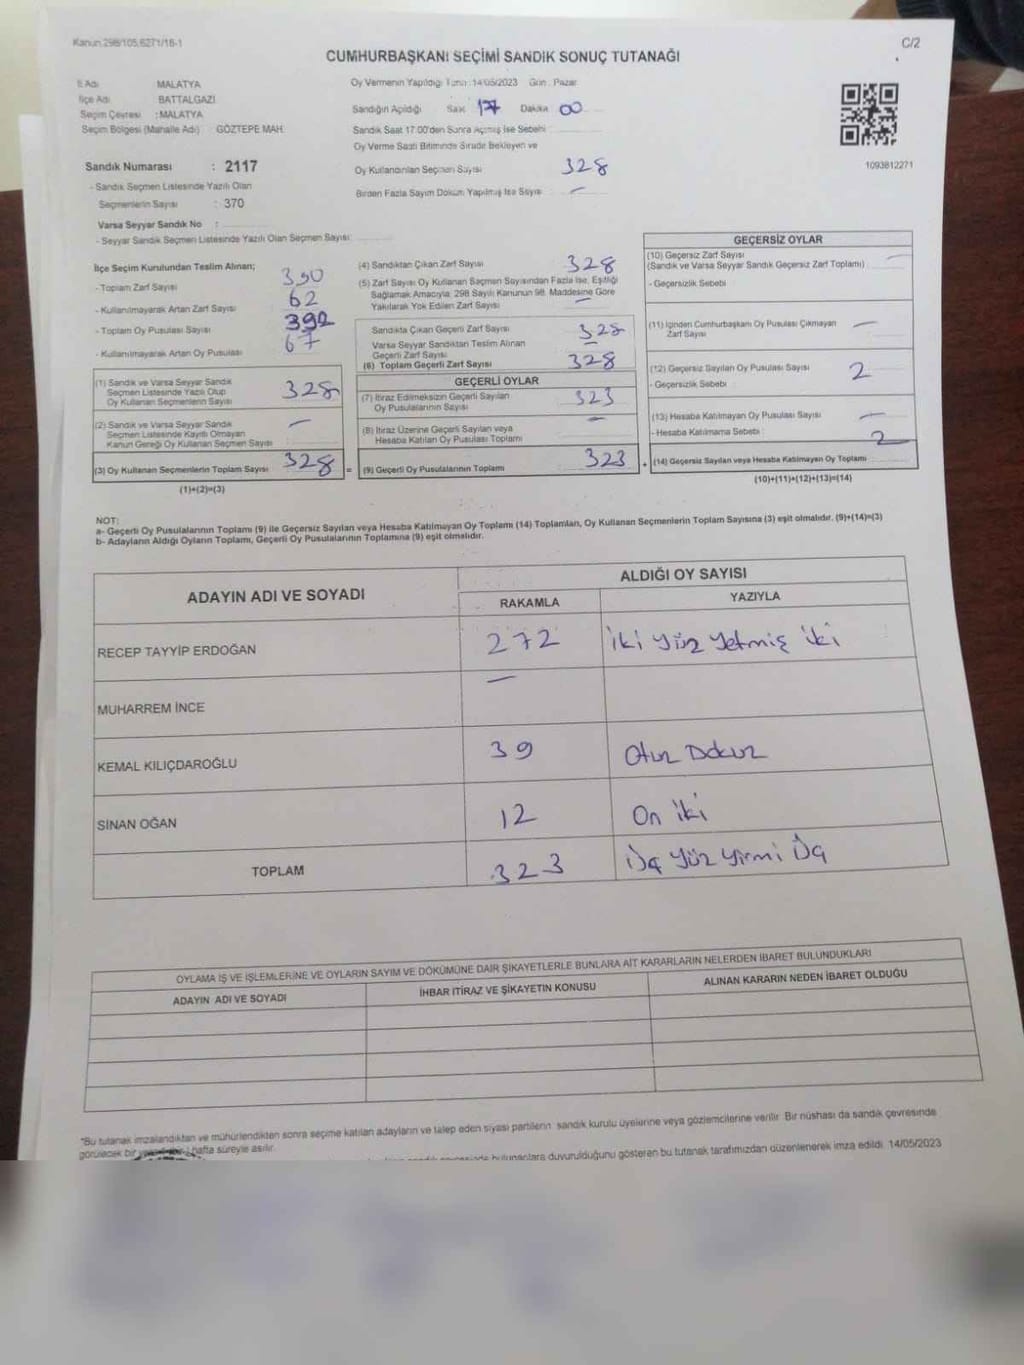 Kanun 298/105,6271/18-1
C/2
CUMHURBAŞKANI SEÇİMİ SANDIK SONUÇ TUTANAĞI
İl Adı MALATYA
İlçe Adı BATTALGAZİ
Seçim Çevresi : MALATYA
Seçim Bölgesi (Mahalle Adı) GÖZTEPE MAH.
Oy Vermenin Yapıldığı Tarih : 14/05/2023 Gün : Pazar
Sandığın Açıldığı Saat 17 Dakika 00
Sandık Saat 17:00'den Sonra Açılmış İse Sebebi :
Oy Verme Saati Bitiminde Sırada Bekleyen ve
Oy Kullandırılan Seçmen Sayısı 328
Birden Fazla Sayım Döküm Yapılmış İse Sayısı –
1093812271
Sandık Numarası : 2117
- Sandık Seçmen Listesinde Yazılı Olan
Seçmenlerin Sayısı : 370
Varsa Seyyar Sandık No :
- Seyyar Sandık Seçmen Listesinde Yazılı Olan Seçmen Sayısı:
İlçe Seçim Kurulundan Teslim Alınan;
- Toplam Zarf Sayısı 390
- Kullanılmayarak Artan Zarf Sayısı 62
- Toplam Oy Pusulası Sayısı 392
- Kullanılmayarak Artan Oy Pusulası 67
(1) Sandık ve Varsa Seyyar Sandık
Seçmen Listesinde Yazılı Olup
Oy Kullanan Seçmenlerin Sayısı 328
(2) Sandık ve Varsa Seyyar Sandık
Seçmen Listesinde Kayıtlı Olmayan
Kanun Gereği Oy Kullanan Seçmen Sayısı –
(3) Oy Kullanan Seçmenlerin Toplam Sayısı 328 =
(1)+(2)=(3)
(4) Sandıktan Çıkan Zarf Sayısı 328
(5) Zarf Sayısı Oy Kullanan Seçmen Sayısından Fazla İse, Eşitliği
Sağlamak Amacıyla, 298 Sayılı Kanunun 98. Maddesine Göre
Yakılarak Yok Edilen Zarf Sayısı –
Sandıkta Çıkan Geçerli Zarf Sayısı 328
Varsa Seyyar Sandıktan Teslim Alınan
Geçerli Zarf Sayısı –
(6) Toplam Geçerli Zarf Sayısı 328
GEÇERLİ OYLAR
(7) İtiraz Edilmeksizin Geçerli Sayılan
Oy Pusulalarının Sayısı 323
(8) İtiraz Üzerine Geçerli Sayılan veya
Hesaba Katılan Oy Pusulası Toplamı –
(9) Geçerli Oy Pusulalarının Toplamı 323 +
GEÇERSİZ OYLAR
(10) Geçersiz Zarf Sayısı
(Sandık ve Varsa Seyyar Sandık Geçersiz Zarf Toplamı) –
- Geçersizlik Sebebi
(11) İçinden Cumhurbaşkanı Oy Pusulası Çıkmayan
Zarf Sayısı –
(12) Geçersiz Sayılan Oy Pusulası Sayısı 2
- Geçersizlik Sebebi
(13) Hesaba Katılmayan Oy Pusulası Sayısı –
- Hesaba Katılmama Sebebi :
(14) Geçersiz Sayılan veya Hesaba Katılmayan Oy Toplamı 2
(10)+(11)+(12)+(13)=(14)
NOT:
a- Geçerli Oy Pusulalarının Toplamı (9) ile Geçersiz Sayılan veya Hesaba Katılmayan Oy Toplamı (14) Toplamları, Oy Kullanan Seçmenlerin Toplam Sayısına (3) eşit olmalıdır. (9)+(14)=(3)
b- Adayların Aldığı Oyların Toplamı, Geçerli Oy Pusulalarının Toplamına (9) eşit olmalıdır.
ADAYIN ADI VE SOYADI
ALDIĞI OY SAYISI
RAKAMLA YAZIYLA
RECEP TAYYİP ERDOĞAN 272 İki yüz yetmiş iki
MUHARREM İNCE –
KEMAL KILIÇDAROĞLU 39 Otuz Dokuz
SİNAN OĞAN 12 On iki
TOPLAM 323 Üç yüz yirmi Üç
OYLAMA İŞ VE İŞLEMLERİNE VE OYLARIN SAYIM VE DÖKÜMÜNE DAİR ŞİKAYETLERLE BUNLARA AİT KARARLARIN NELERDEN İBARET BULUNDUKLARI
ADAYIN ADI VE SOYADI İHBAR İTİRAZ VE ŞİKAYETİN KONUSU ALINAN KARARIN NEDEN İBARET OLDUĞU
"Bu tutanak imzalandıktan ve mühürlendikten sonra seçime katılan adayların ve talep eden siyasi partilerin sandık kurulu üyelerine veya gözlemcilerine verilir. Bir nüshası da sandık çevresinde
görülecek bir hafta süreyle asılır.
bulunanlara duyurulduğunu gösteren bu tutanak tarafımızdan düzenlenerek imza edildi. 14/05/2023